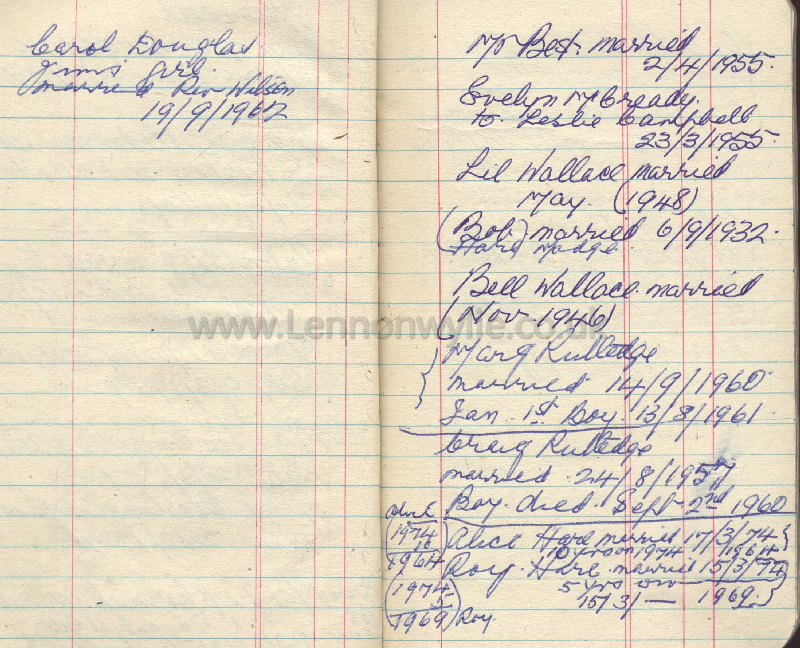 Carol Douglas
Jim's girl.
married Rev Wilson
19/9/1962
Mr Best. married
2/4/1955.
Evelyn McCready.
to Leslie Campbell
23/3/1955.
Lil Wallace married
May. (1948)
(Bob) married 6/9/1932.
Hare Madge.
Bell Wallace married
(Nov 1946)
www.Lennonwylie.co.uk
Marg Rutledge
married 14/9/1960.
Ian 1st Boy. 13/8/1961.
Craig Rutledge
married. 24/8/1957
Roy. died. Sept 2nd 1960
Alice Hare married 17/3/74
10 yrs on 1974 1964
Roy. Hare. married 15/3/74
5 yrs on
15/3/— 1969.
1974
10
1964
1974
5
1969 Roy.